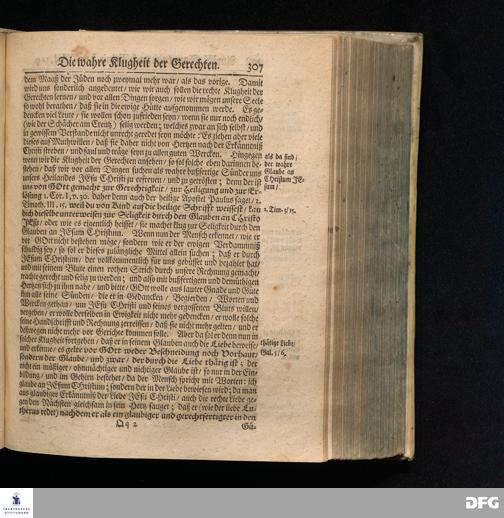 Die wahre Klugheit der Gerechten. 307
dem Maaß der Jüden noch zweymal mehr war/ als das vorige. Damit
wird uns sonderlich angedeutet/ wie wir auch sollen die rechte Klugheit der
Gerechten lernen/ und vor allen Dingen sorgen/ wie wir mögen unsere Seele
so wohl berathen/ daß sie in die ewige Hütte aufgenommen werde. Es ge-
dencken viel Leute/ sie wollen schon zufrieden seyn/ wenn sie nur noch endlich/
(wie der Schächer am Creutz) selig werden; welches zwar an sich selbst/ und
in gewissem Verstande nicht unrecht geredet seyn möchte: Es ziehen aber viele
dieses auf Muthwillen/ daß sie daher nicht von Hertzen nach der Erkänntniß
Christi streben/ und faul und träge seyn zu allen guten Wercken. Hingegen
wenn wir die Klugheit der Gerechten ansehen/ so sol solche eben darinnen be-
stehen/ daß wir vor allen Dingen suchen als wahre bußfertige Sünder uns
unsers Heilandes JEsu Christi zu erfreuen/ und zu getrösten; denn der ist
uns von GOtt gemacht zur Gerechtigkeit/ zur Heiligung und zur Er-
lösung 1. Cor. I, v. 30. daher denn auch der heilige Apostel Paulus saget/ 2.
Timoth. III, 15. weil du von Kind auf die heilige Schrifft weissest/ kan
dich dieselbe unterweisen zur Seligkeit durch den Glauben an Christo
JEsu/ oder wie es eigentlich heisset/ sie machet klug zur Seligkeit durch den
Glauben an JEsum Christum. Wenn nun der Mensch erkennet/ wie er
vor GOtt nicht bestehen möge/ sondern wie er der ewigen Verdammniß
schuldig sey/ so sol er dieses zulängliche Mittel allein suchen; daß er durch
JEsum Christum/ der vollkommentlich für uns gebüsset und bezahlet hat/
und mit seinem Blute einen rothen Strich durch unsere Rechnung gemacht/
möge gerecht und selig zu werden; und also mit bußfertigem und demüthigen
Hertzen sich zu ihm nahe/ und bitte/ GOtt wolle aus lauter Gnade und Güte
ihm alle seine Sünden/ die er in Gedancken/ Begierden/ Worten und
Wercken gethan/ um JEsu Christi und seines vergossenen Bluts willen/
vergeben/ er wolle derselben in Ewigkeit nicht mehr gedencken/ er wolle solche
seine Handschrifft und Rechnung zerreissen/ daß sie nicht mehr gelten/ und er
deßwegen nicht mehr vor Gerichte kommen solle. Aber da sol er denn nun in
solche Klugheit fortgehen/ daß er in seinem Glauben auch die Liebe beweise/
und erkenne/ es gelte vor GOtt weder Beschneidung noch Vorhaut/
sondern der Glaube/ und zwar/ der durch die Liebe thätig ist; der
nicht ein müßiger/ ohnmächtiger und nichtiger Glaube ist/ so nur in der Ein-
bildung/ und im Gehirn bestehet/ da der Mensch spricht mit Worten: ich
glaube an JEsum Christum; sondern der in der Liebe bewiesen wird; da man
aus gläubiger Erkänntniß der Liebe JEsu Christi/ auch die rechte Liebe ge-
gen den Nächsten gleichsam in sein Hertz sauget; daß er (wie der liebe Lu-
therus redet) nachdem er als ein gläubiger und gerechtfertigter in den
Qq 2 Gü-
als da sind/
der wahre
Glaube an
Christum JE-
sum/
2. Tim. 3/ 15.
thätige Liebe/
Gal. 5/ 6.
FRANCKESCHE
STIFTUNGEN
DFG